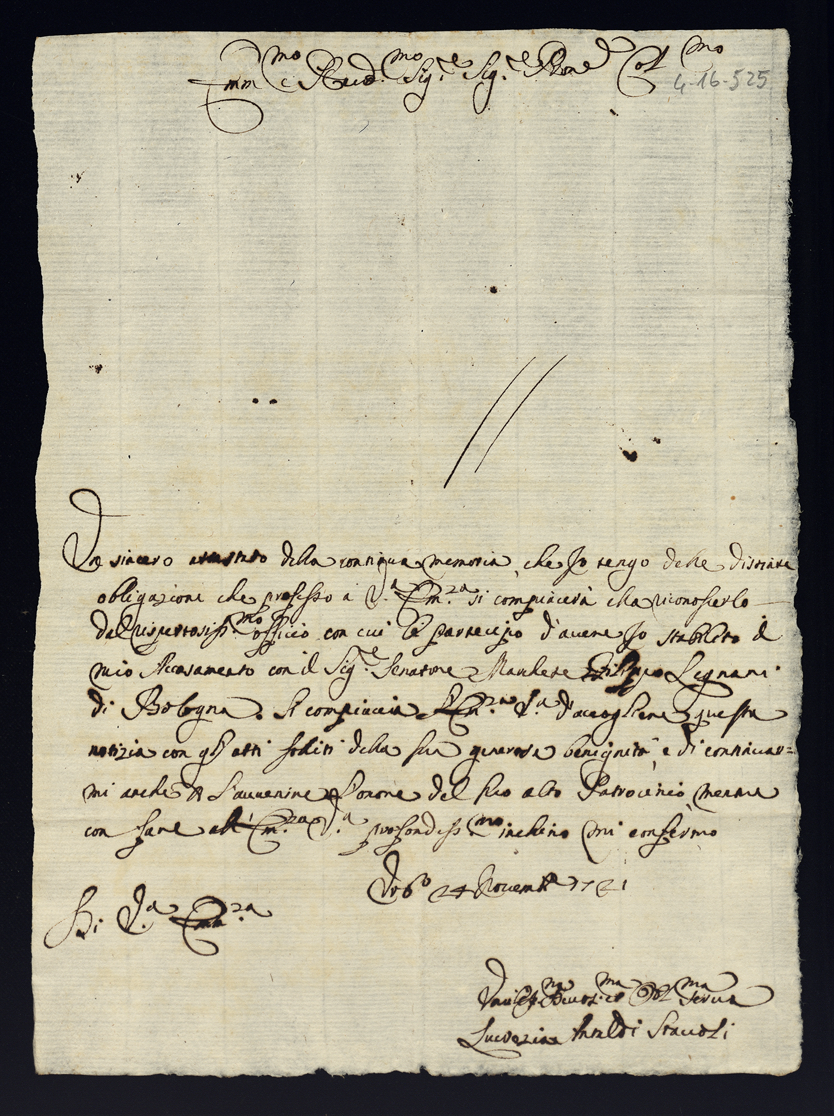 Emm.mo e Reud.mo Sig.re Sig.re Prone Col.mo
4-16-525
Vn sincero attestato della continua memoria, che Io tengo delle distinte
obligazione che professo a V.a Em.za si compiacerà ella riconoscerlo
dal rispettosiss.mo officio con cui le partecipo d'auere Io stabilito il
mio Accasamento con il Sig.re Senatore Marchese Filippo Legnani
di Bologna. Si compiaccia l'Em.za V.a d'accogliere questa
notizia con gl'atti soliti della sua generosa benignità, e di continuar=
mi anche in l'auuenire l'onore del suo alto Patrocinio mentre
con fare all'Em.za V.a profondiss.mo inchino mi confermo
24 Nouemb 1721
Di V.a Emm.za
Vmiliss.ma Deuot.ma et Obl.ma Serua
Lucrezia Antaldi Staccoli